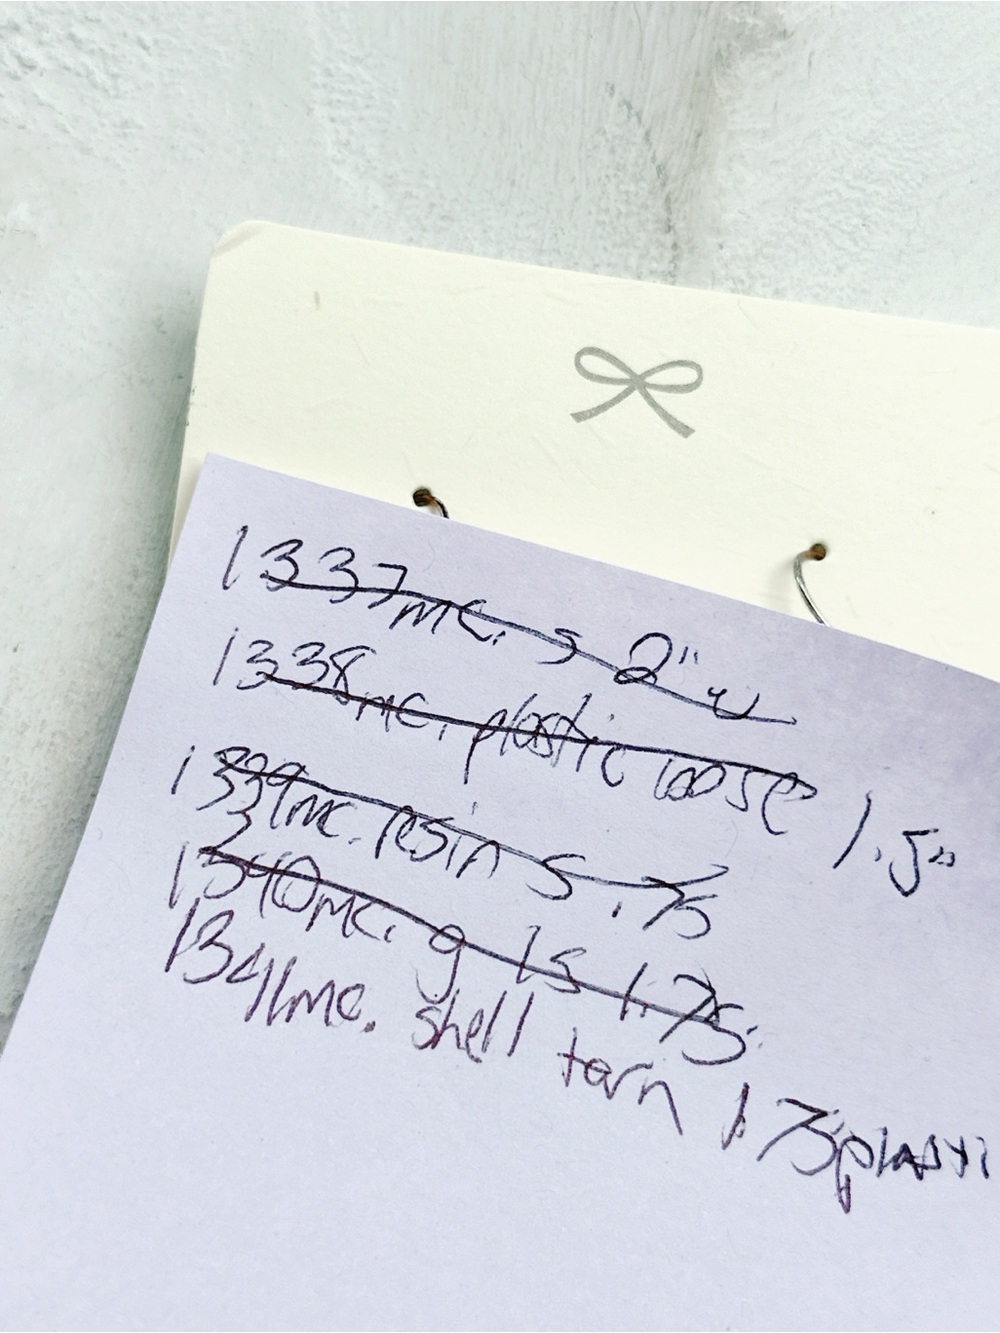 1337mc. s 2" w
1338mc. plastic loose 1.5"
1339mc. resin s .75
1340mc. g ls 1.75
1341mc. shell torn 1.75 plasti